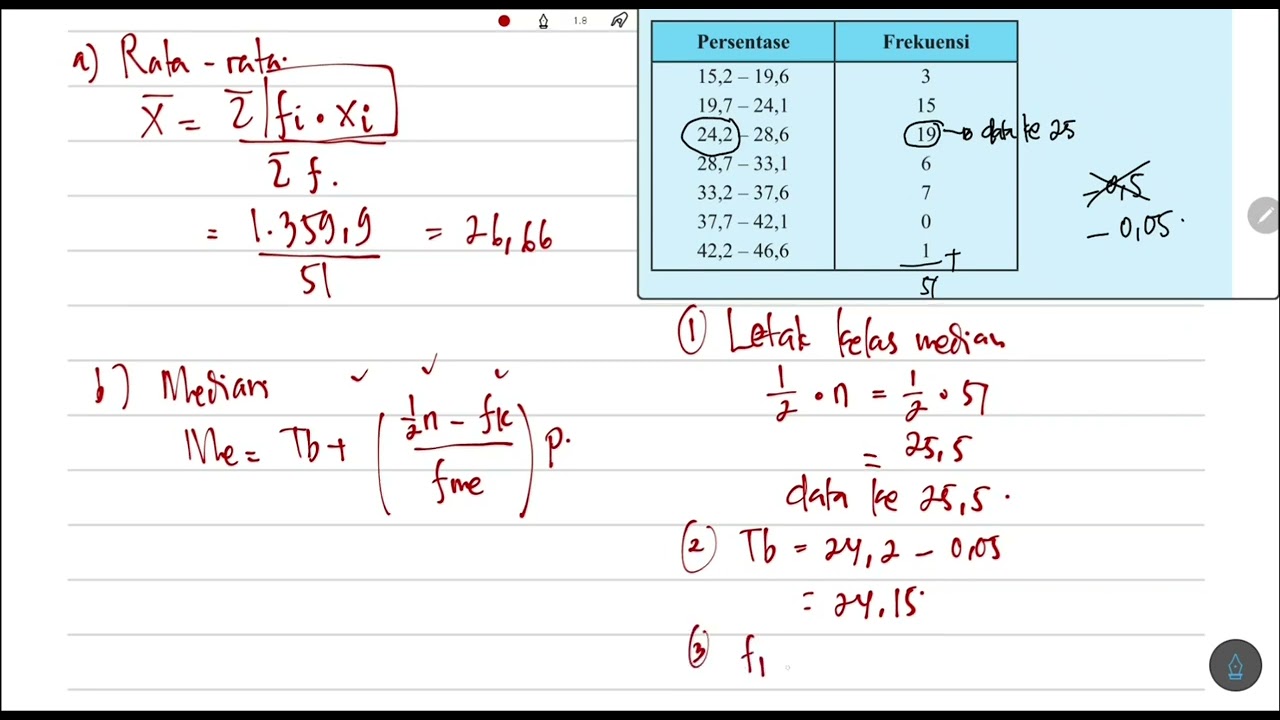 1.8
a) Rata-rata.
X̄ = Σ fi . xi
Σ f.
= 1.359,9 = 26,66
51
Persentase Frekuensi
15,2 – 19,6 3
19,7 – 24,1 15
24,2 – 28,6 19 → data ke 25
28,7 – 33,1 6
33,2 – 37,6 7
37,7 – 42,1 0
42,2 – 46,6 1 +
51
- 0,5
- 0,05.
b) Median
Me = Tb + ( ½n - fk ) p.
fme
① Letak kelas median
1/2 . n = 1/2 . 51
= 25,5
data ke 25,5.
② Tb = 24,2 - 0,05
= 24,15
③ f1